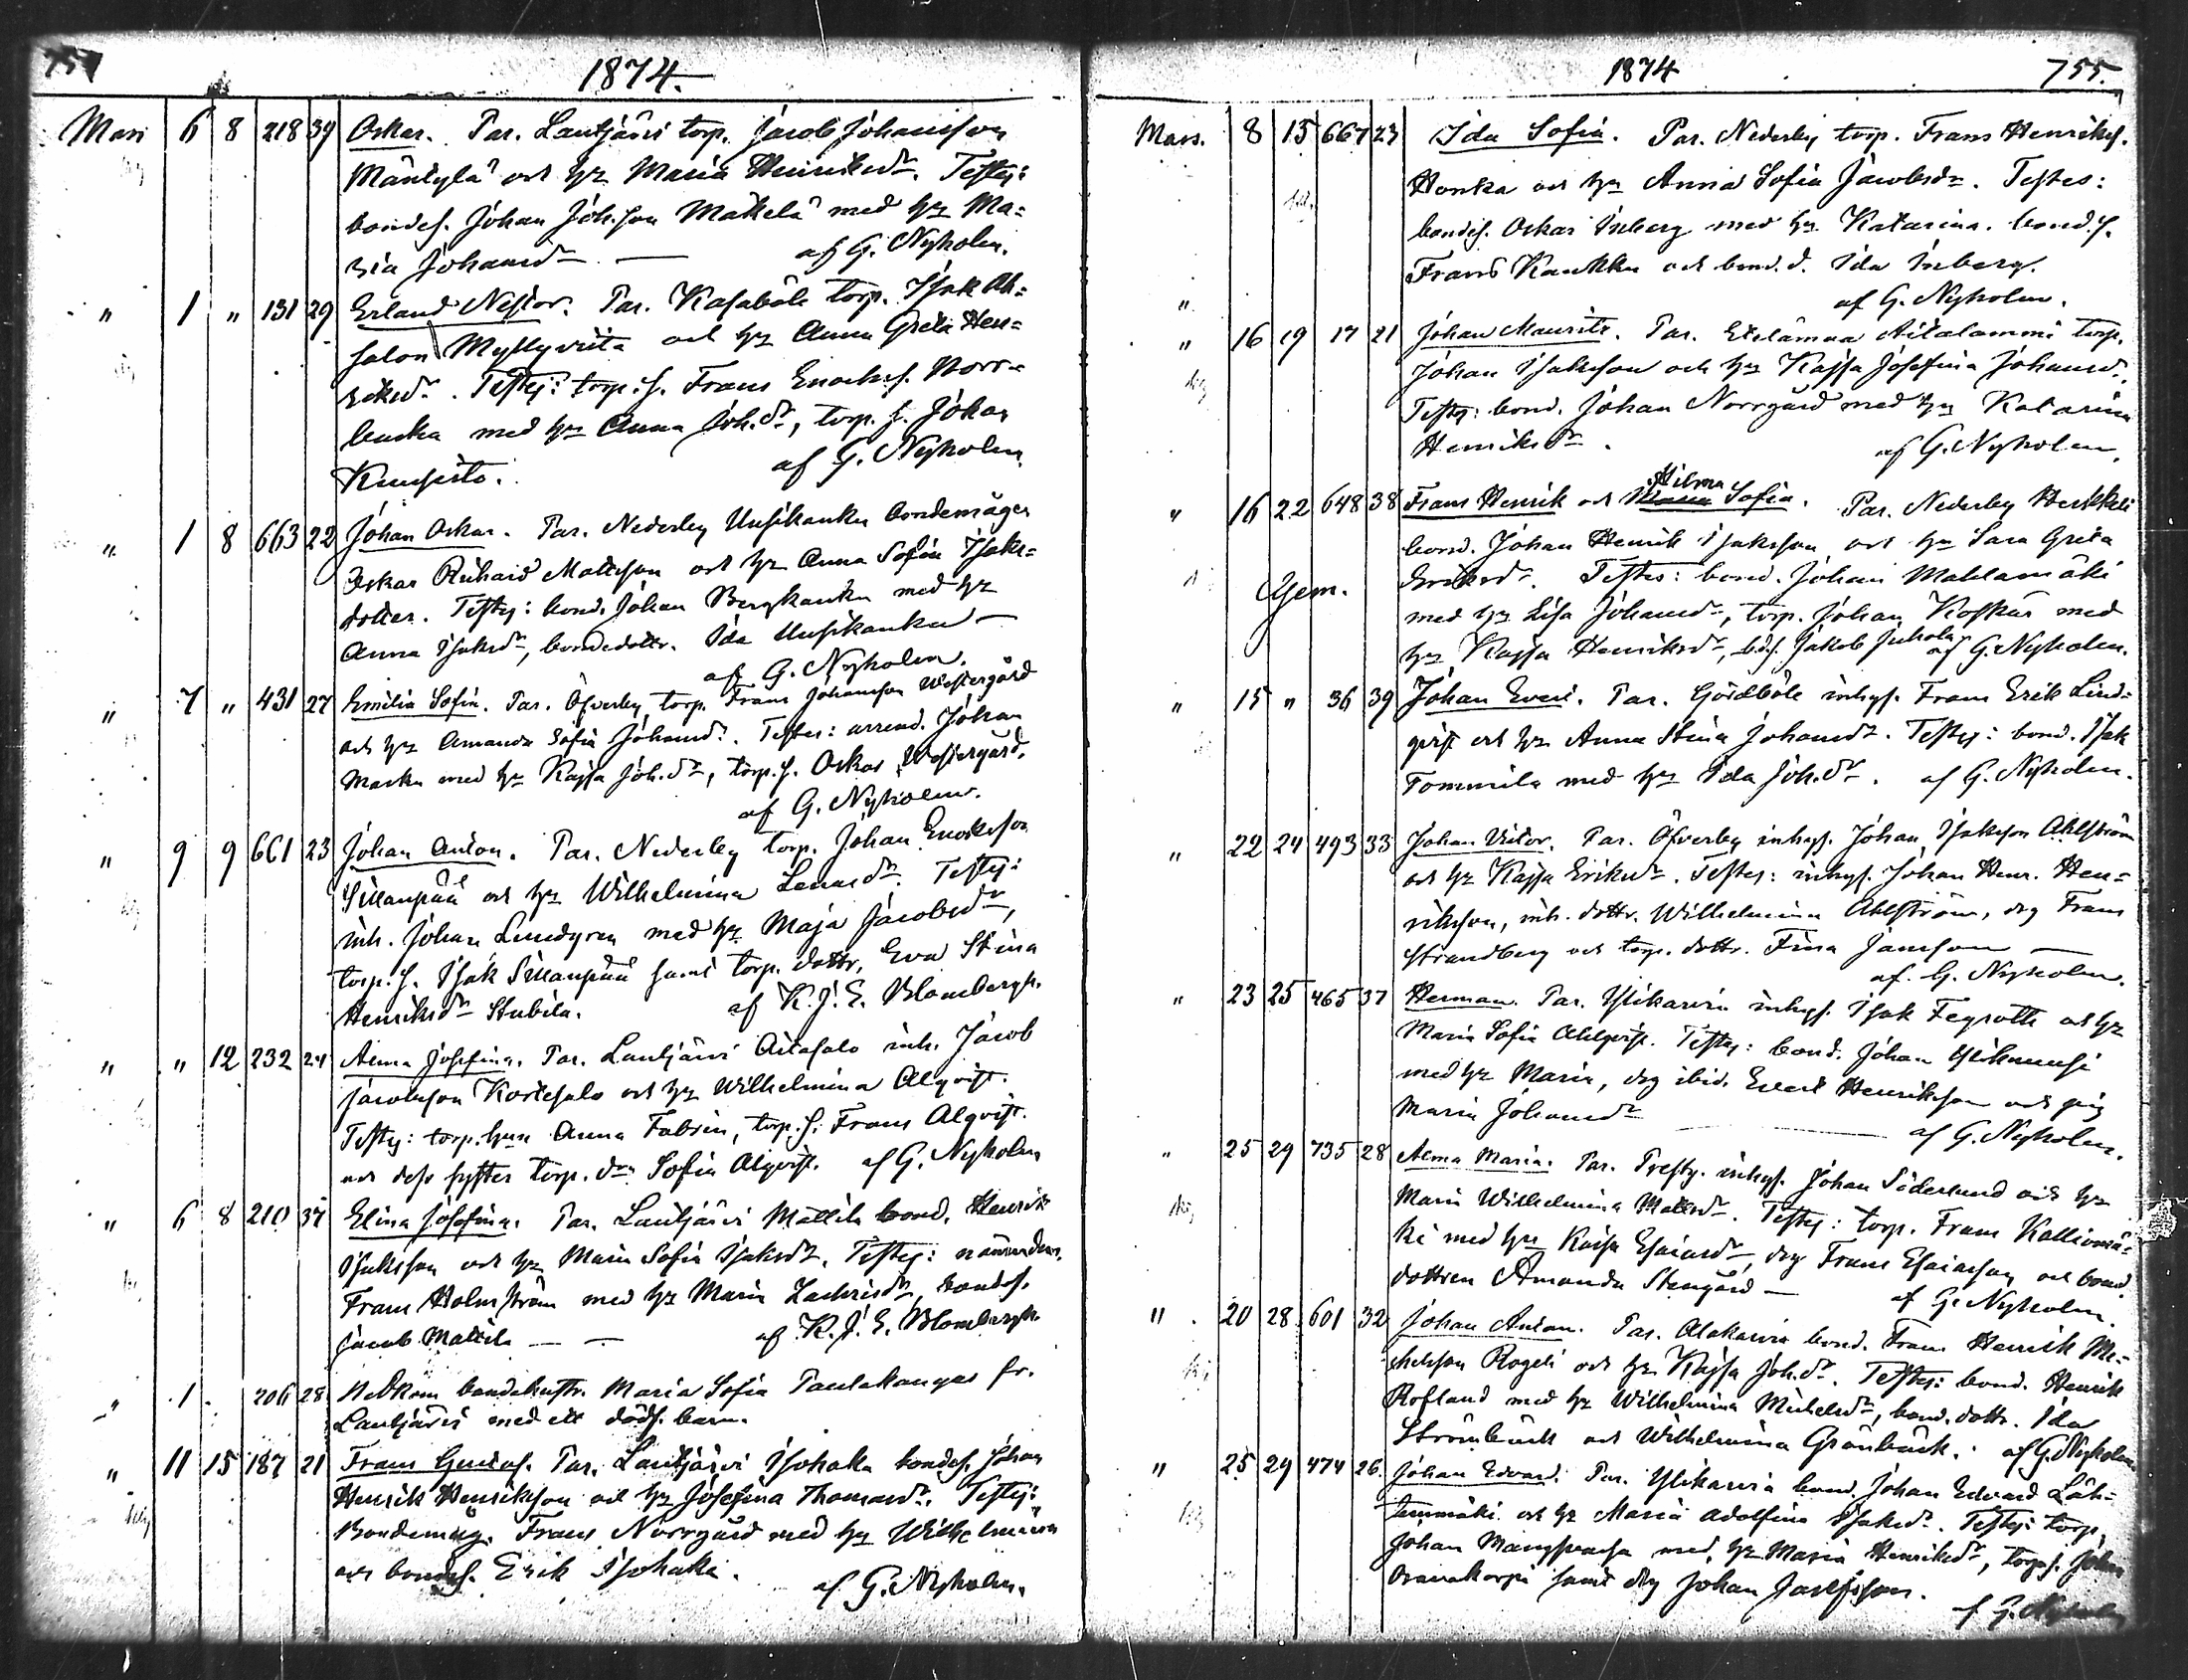 754
1874.
Mars 6 8 218 39 Oskar. Par. Lautjärvi torp. Jacob Johansson
Mäntylä och h: Maria Henriksdr. Testes:
bondes. Johan Joh:son Mäkelä med h: Ma=
ria Johansdr. — af G. Nyholm.
" 1 " 131 29 Erland Nestor. Par. Kasaböle torp. Isak Ab=
salon Myllyviita och h: Anna Greta Hen=
riksdr. Testes: torp. s. Frans Enochss. Norr=
backa med h: Anna Joh.dr, torp. s. Johan
Kuusisto. af G. Nyholm.
" 1 8 663 22 Johan Oskar. Par. Nederby Uusikauku bondemågen
Oskar Richard Mattsson och h: Anna Sofia Isaks=
dotter. Testes: bond. Johan Bergkauku med h:
Anna Isaksdr, bondedottr. Ida Uusikauku —
af G. Nyholm.
" 7 " 431 27 Emilia Sofia. Par. Öfverby torp. Frans Johansson Westergård
och h: Amanda Sofia Johansdr. Testes: arrend. Johan
Marku med h: Kajsa Joh.dr, torp. s. Oskar Westergård.
af G. Nyholm.
" 9 9 661 23 Johan Anton. Par. Nederby torp. Johan Enoksson
Sillanpää och h: Wilhelmina Lenasdr. Testes:
inh. Johan Lundgren med h: Maja Jacobsdr,
torp. s. Isak Sillanpää samt torp. dottr. Eva Stina
Henriksdr Stubila. af K. J. E. Blombergh.
" " 12 232 24 Alma Josefina. Par. Lautjärvi Aitasalo inh. Jacob
Jacobsson Kortesalo och h: Wilhelmina Alqvist.
Testes: torp. hun Anna Fabrin, torp. s. Frans Alqvist.
och dess syster torp. dr Sofia Alqvist. af G. Nyholm
" 6 8 210 37 Elina Josefina. Par. Lautjärvi Mattila bond. Henrik
Isaksson och h: Maria Sofia Isaksdr. Testes: nämndem.
Frans Holmström med h: Maria Zachrisdr, bondes.
Jacob Mattila — — af K. J. E. Blombergh.
" 1 . 206 28 Nedkom bondehustr. Maria Sofia Pantakangas fr.
Lautjärvi med ett dödf. barn.
" 11 15 187 21 Frans Gustaf. Par. Lautjärvi Isohaka bondes. Johan
Henrik Henriksson och h: Josefina Thomasdr. Testes:
Bondemåg. Frans Norrgård med h: Wilhelmina
och bondes. Erik Isohaka. af G. Nyholm.
1874 755.
Mars. 8 15 667 23 Ida Sofia. Par. Nederby torp. Frans Henrikss.
Honka och h: Anna Sofia Jacobsdr. Testes:
bondes. Oskar Inberg med h: Katarina. bond. s.
Frans Kaukku och bond. d. Ida Inberg.
af G. Nyholm.
" 16 19 17 21 Johan Mauritz. Par. Aitalammi torp.
Johan Isaksson och h: Kajsa Josefina Johansd.
Testes: bond. Johan Norrgård med h: Katarina
Henriksdr. af G. Nyholm.
" 16 22 648 38 Frans Henrik och Maria Hilma Sofia. Par. Nederby Heikkilä
bond. Johan Henrik Isaksson och h: Sara Greta
Gem. Eriksdr. Testes: bond. Johan Mahlamäki
med h: Lisa Johansdr, torp. Johan Koskar med
h: Kajsa Henriksdr, bds. Jakob Juhola af G. Nyholm.
" 15 " 36 39 Johan Evert. Par. Gördböle inhys. Frans Erik Lind=
qvist och h: Anna Stina Johansdr. Testes: bond. Isak
Tommila med h: Ida Joh.dr. af G. Nyholm.
" 22 24 493 33 Johan Victor. Par. Öfverby inhys. Johan Isaksson Ahlström
och h: Kajsa Eriksdr. Testes: inhys. Johan Henr. Hen=
riksson, inh. dottr. Wilhelmina Ahlström, drg Frans
Strandberg och torp. dottr. Fina Jansson —
af G. Nyholm.
" 23 25 465 37 Herman. Par. Ylikarvia inhys. Isak Fegroth och h:
Maria Sofia Ahlqvist. Testes: bond. Johan Ylikauusi
med h: Maria, drg ibid. Evert Henriksson och pig
Maria Johansdr — af G. Nyholm.
" 25 29 735 28 Alma Maria. Par. Prestg. inhys. Johan Söderlund och h:
Maria Wilhelmina Mattsdr. Testes: torp. Frans Kalliomä=
ki med h: Kajsa Esaiasdr, drg Frans Esaiasson och bond
dottren Amanda Stengård — af G. Nyholm.
" 20 28 601 32 Johan Anton. Par. Alakarvia bond. Frans Henrik Mi=
chelsson Rogeli och h: Kajsa Joh.dr. Testes: bond. Henrik
Rosland med h: Wilhelmina Michelsdr, bond. dottr. Ida
Strömbäck och Wilhelmina Grönbäck. af G. Nyholm
" 25 29 474 26 Johan Edvard. Par. Ylikarvia bond. Johan Edvard Läh=
teenmäki och h: Maria Adolfina Isaksdr. Testes: torp.
Johan med h: Maria Henriksdr, torp. s. Johan
Oravakorpi samt drg Johan Josefsson.
af G. Nyholm